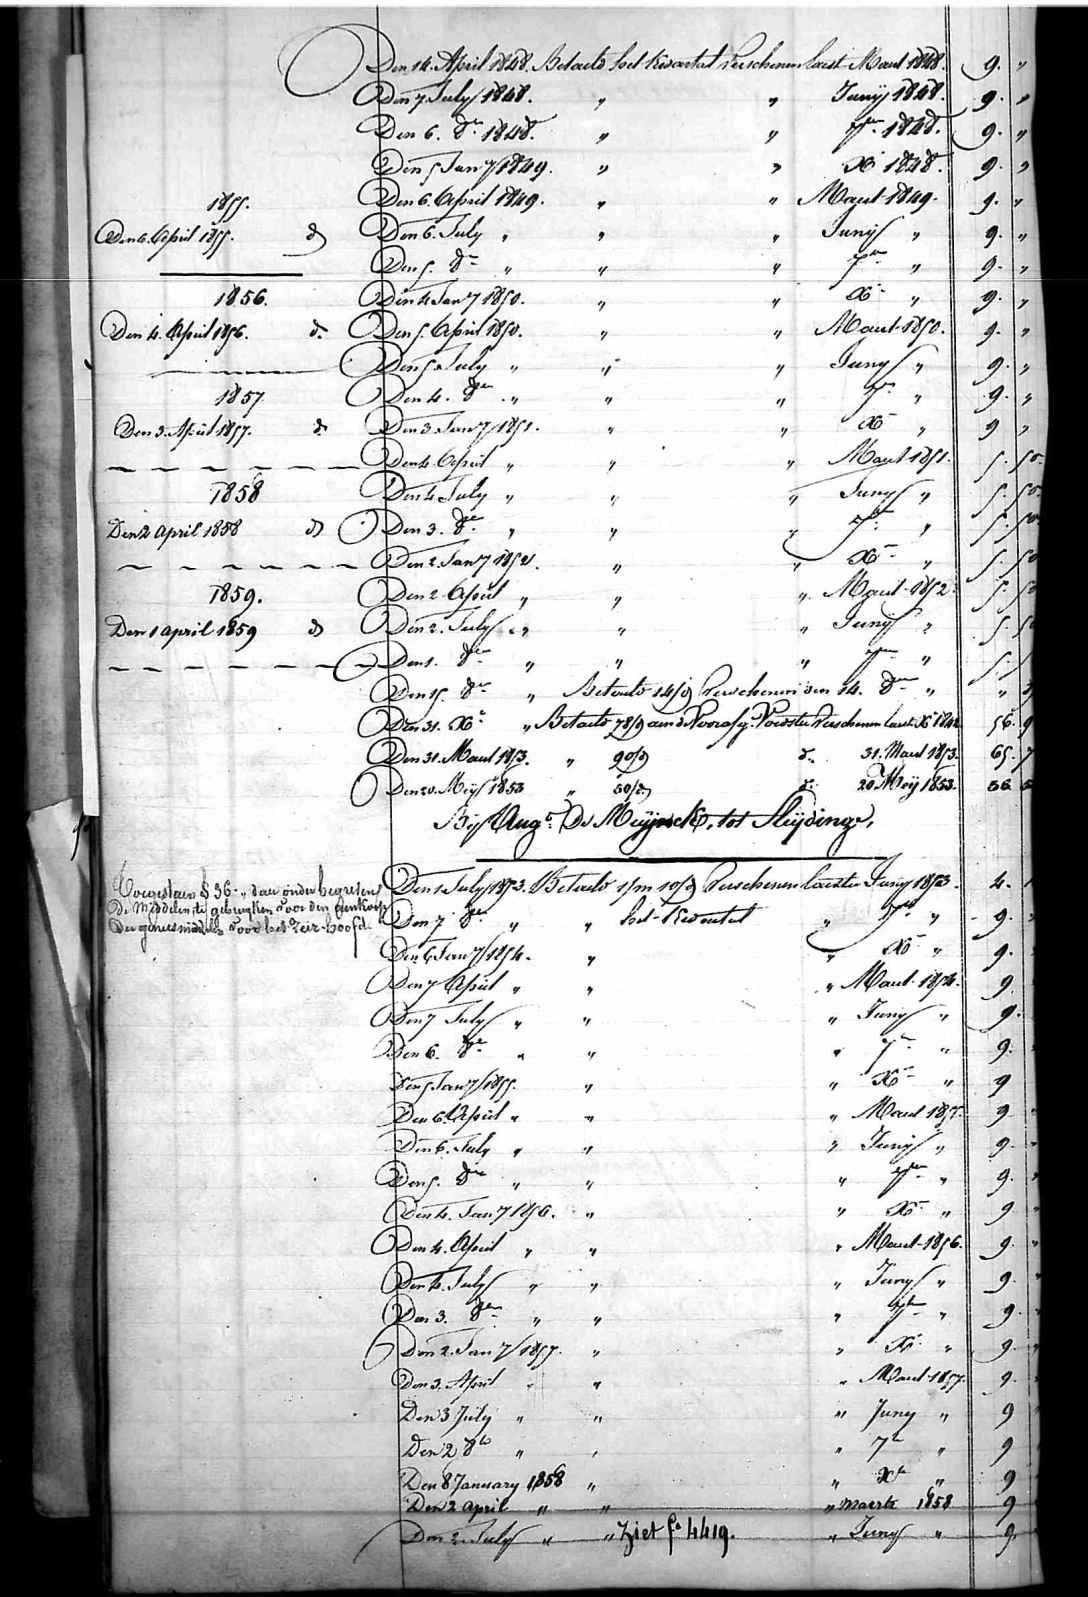 Den 14. April 1848. Betaeld het Kwartal Verschenen laest Maert 1848. 9. "
Den 7 July 1848. " " Juny 1848. 9. "
Den 6. 8er 1848. " " 7er 1848. 9. "
Den 5 Jany 1849. " " Xr 1848. 9. "
Den 6. April 1849. " " Maert 1849. 9. "
1855.
Den 6 April 1855. d
Den 6. July " " " Juny " 9. "
Den 5. 8er " " " 7er " 9. "
1856.
Den 4 Jany 1850. " " Xr " 9. "
Den 4. April 1856. d.
Den 5. April 1850. " " Maert 1850. 9. "
Den 5 July " " " Juny " 9. "
1857
Den 4. 8er " " " 7er " 9. "
Den 3. April 1857. d.
Den 3. Jany 1851. " " Xr " 9 "
Den 4 April " " " Maert 1851. 5. 50.
1858
Den 4 July " " " Juny " 5. 50.
Den 2 April 1858 d
Den 3. 8er " " " 7er " 5. 50
Den 2. Jany 1852. " " Xr " 5. 50
1859.
Den 2 April " " " Maert 1852. 5. 50
Den 1 april 1859 d
Den 2. July " " " Juny " 5. 50
Den 1. 8er " " " 7er " 5.
Den 15. 8er " Betaeld 14/d Verschenen den 14. 8er " "
Den 31. Xr " Betaeld 78/d aen d Voorsz. Verschenen laest Xr 56.
Den 31. Maert 1853. " 90/d d. 31. Maert 1853. 65. 7
Den 20. Mey 1853 " 50/d d. 20 Mey 1853. 36.
By Augt. De Meyinck, tot Sleydinge,
Toegestaen § 36-" dan onder begrepen
de Middelen, te gebruyken voor den
der geneesmiddels voor het Zeer-hoofd.
Den 1 July 1853. Betaeld 1/m 10/d Verschenen laeste Juny 1853. 4.
Den 7 8er " " het Kwartal " 7er " 9.
Den 6 Jany 1854. " " Xr " 9.
Den 7 April " " " Maert 1854. 9
Den 7 July " " " Juny " 9.
Den 6. 8er " " " 7er " 9.
Den 5 Jany 1855. " " Xr " 9
Den 6. April " " " Maert 1855. 9
Den 6. July " " " Juny " 9.
Den 5. 8er " " " 7er " 9.
Den 4. Jany 1856. " " Xr " 9
Den 4. April " " " Maert 1856. 9.
Den 4. July " " " Juny " 9
Den 3. 8er " " " 7er " 9.
Den 2. Jany 1857. " " Xr " 9.
Den 3. April " " " Maert 1857. 9.
Den 3 July " " " Juny " 9
Den 2 8b " " " 7b " 9
Den 8 January 1858 " " Xr " 9
Den 2 april " " " maerte 1858 9
Den 2. July " " Ziet fo 4419. " Juny " 9.